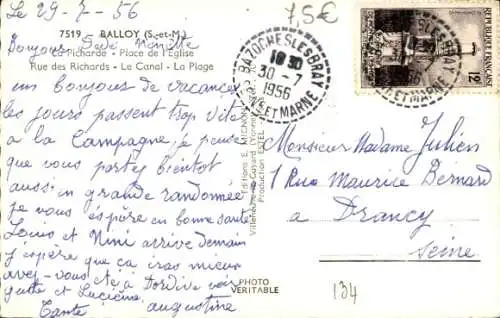 Le 29-7-56
7,5€
7519 . BALLOY (S.-et-M.)
La Picharde - Place de l'Eglise
Rue des Richards - Le Canal - La Plage
Bonjour
un Bonjour de vacances
les jours passent trop vite
a la Campagne je pense
que vous partez bientot
aussi en grande randonnée
je vous espère en bonne santé
Louis et Nini arrive demain
j'espère que ca ira mieux
avez-vous été a Dordive voir
et Lucienne
Tante augustine
Editions E. MIGNON
Villeneuve-la-Guyard (Yonne)
Production ESTEL
PHOTO
VERITABLE
BAZOCHES LES BRAY
10 30
30-7
1956
S. ET MARNE
REPUBLIQUE FRANÇAISE
12
ET MARNE
Monsieur Madame Julien
1 Rue Maurice Bernard
a Drancy
Seine
134